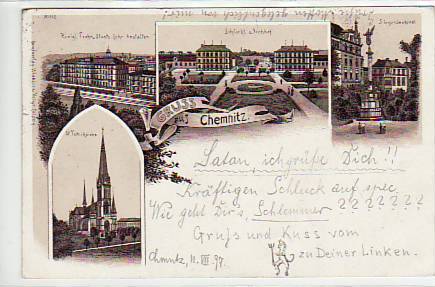 Königl. Techn. Staats Lehr Anstalten
Schlacht- u. Viehhof
Siegesdenkmal
GRUSS
aus
Chemnitz.
St. Petrikirche
Satan, ich grüße Dich!!
Kräftigen Schluck auf spec.
Wie geht Dir's, Schlemmer ???????
Gruß und Kuss vom
zu Deiner Linken.
Chmntz, 11. VIII. 97.